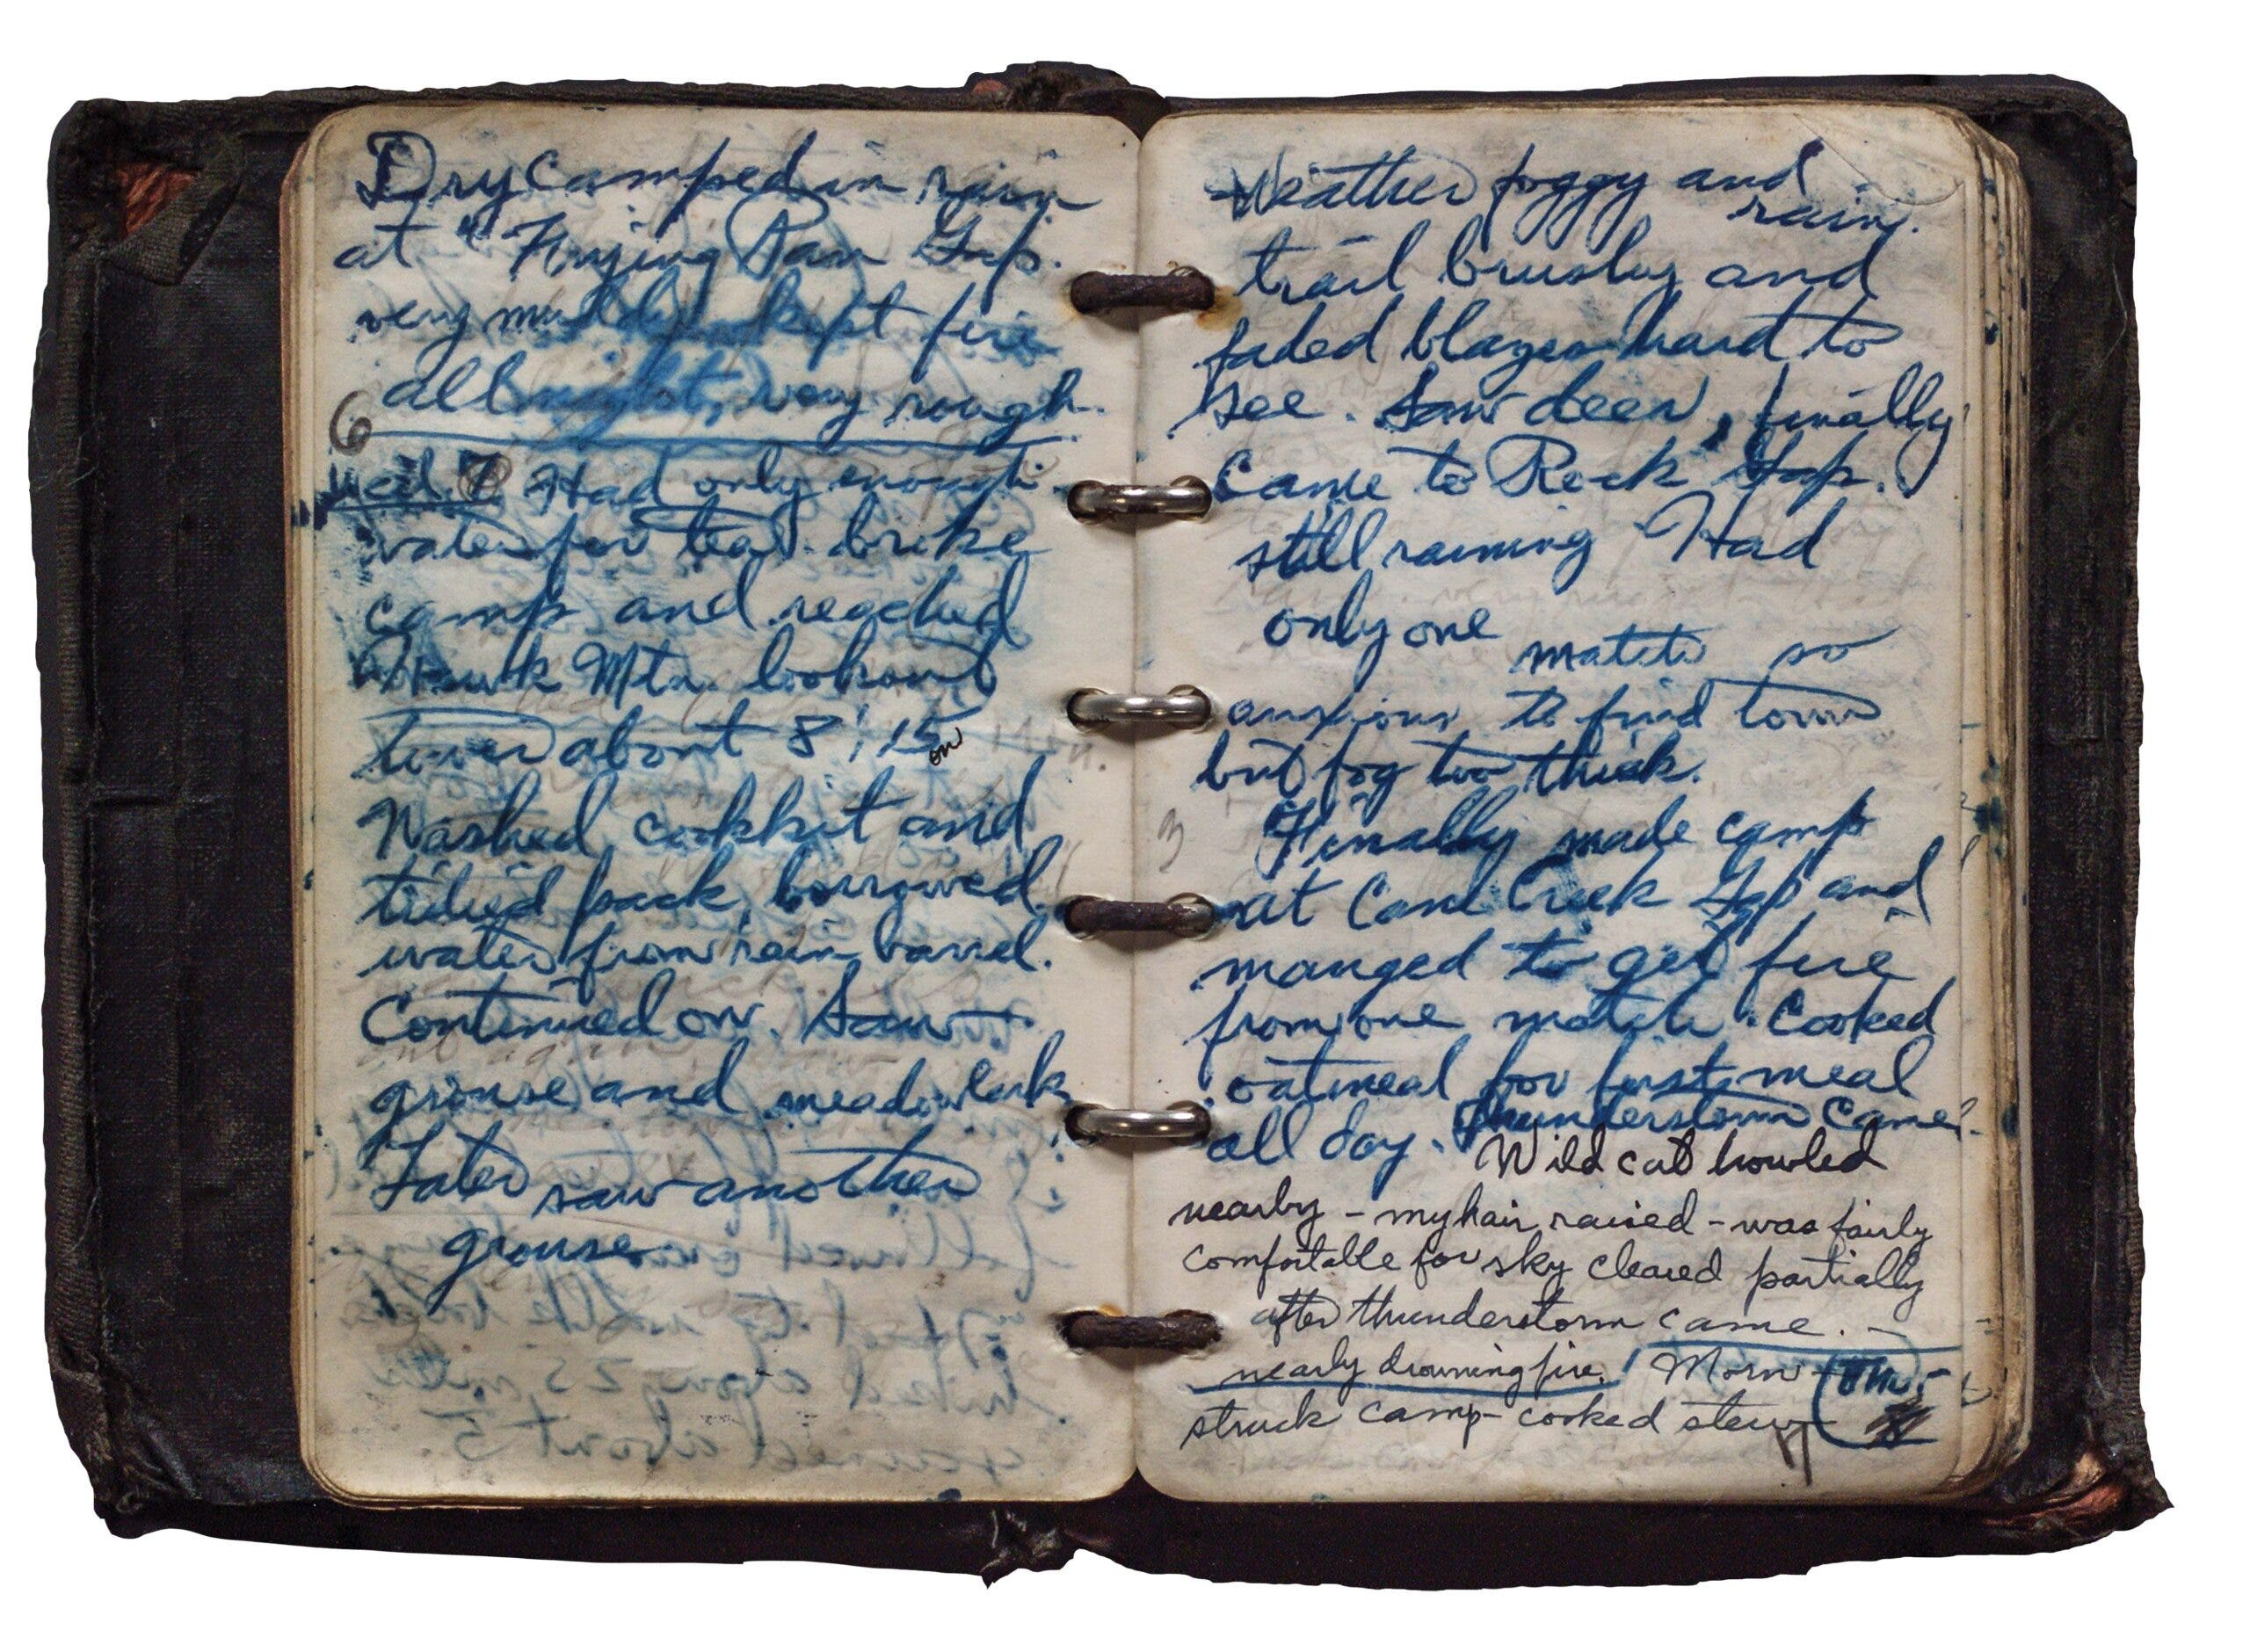 Dry camped in rain
at "Frying Pan Gap.
very muddy kept fire
all night, very rough.
6
Wed. 7 Had only enough
water for tea. broke
camp and reached
Hawk Mtn. lookout
tower about 8:15 on
Washed cookkit and
tidied pack, borrowed
water from rain barrel.
Continued on. Saw
grouse and meadowlark
Later saw another
grouse.
Weather foggy and
rain.
trail brushy and
faded blazes hard to
see. Saw deer, finally
came to Rock Gap.
still raining Had
only one
match so
anxious to find town
but fog too thick.
3
Finally made camp
at Cane Creek Gap and
manged to get fire
from one match. Cooked
oatmeal for first meal
all day. Thunderstorm came.
Wild cat howled
nearby - my hair raised - was fairly
comfortable for sky cleared partially
after thunderstorm came. -
nearly drowning fire. Morn -
struck camp - cooked stew